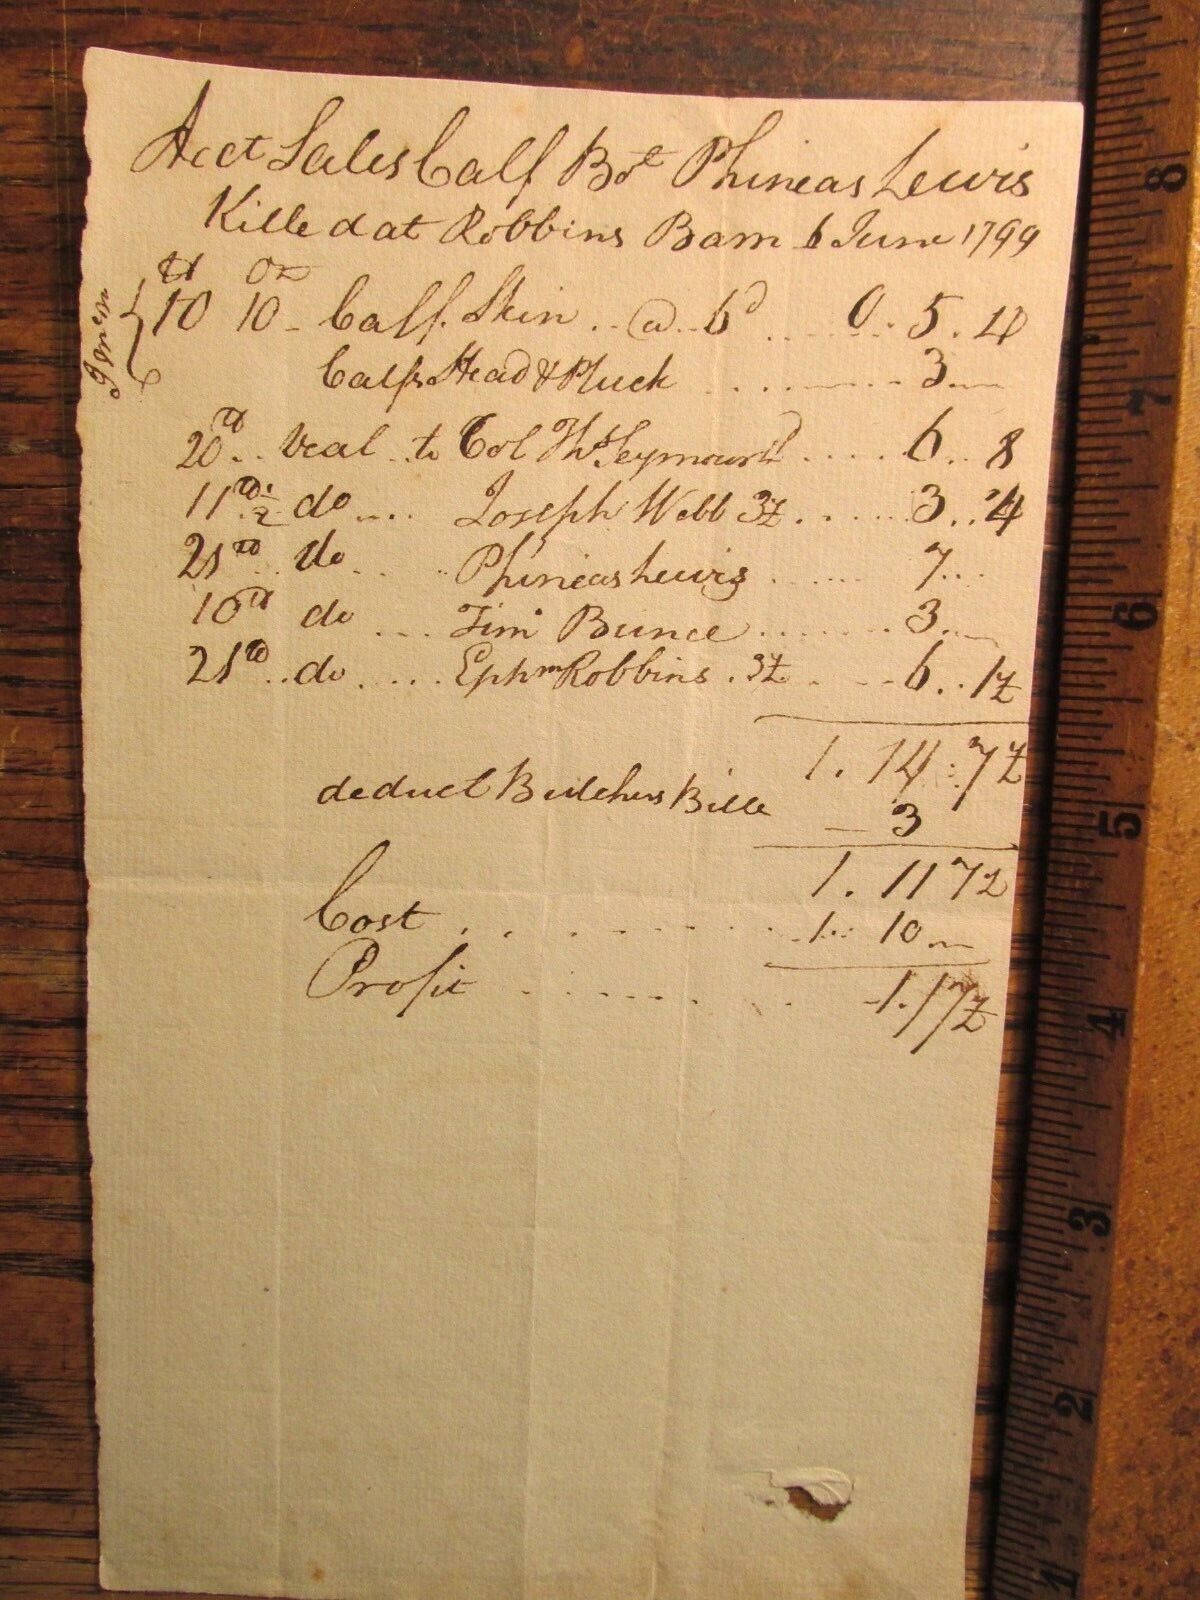 Acct Sales Calf Bot Phineas Lewis
Killed at Robbins Barn 6 June 1799
lb Oz
10 10 - Calf Skin .. @ .. 6d .... 0 . 5 . 4
Calfs Head & Pluck ........ 3 . —
20 lb .. Veal .. to Col Ths Seymour .... 6 .. 8
11 lb 1/2 do .... Joseph Webb 3½ ...... 3 .. 4
21 lb .. do .. Phineas Lewis ...... 7 ..
10 lb do ... Tim Bunce ....... 3 . —
21 lb .. do .... Ephm Robbins . 3½ .... 6 .. 1½
1 . 14 : 7½
deduct Butchers Bill — 3
1 . 11 7½
Cost ......... 1 .. 10 . —
Profit ........ 1 . 7½
8
7
6
5
4
3
2
1